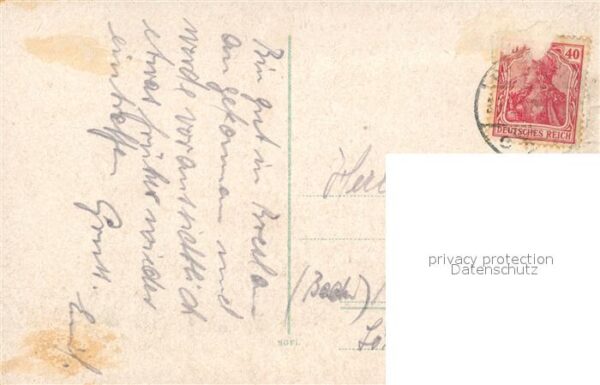 Bin gut in Breslau
angekommen und
werde voraussichtlich
etwas früher wieder
eintreffen
Gruß.
40
DEUTSCHES REICH
(Baden)
privacy protection
Datenschutz